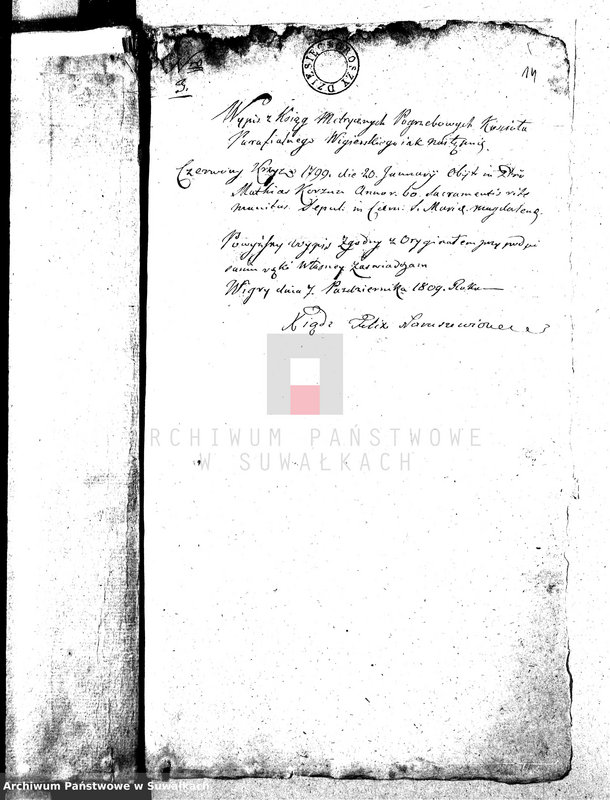 DZIESIĘĆ GROSZY
14
3.
Wypis z Ksiąg Metrycznych Pogrzebowych Kościoła
Parafialnego Wigierskiego iak następuie.
Czerwony Krzyż 1799. die 20. Januarij obijt in Dno
Mathias Korzun Annor. 60. Sacramentis rite
munitus. Sepul. in Caem. S. Maria Magdalena.
Powyższy wypis Zgodny z Oryginałem przy podpi
saniu ręki własney Zaswiadczam
Wigry dnia 7. Pazdziernika 1809. Roku
Xiądz Felix
ARCHIWUM PAŃSTWOWE
W SUWAŁKACH
Archiwum Państwowe w Suwałkach